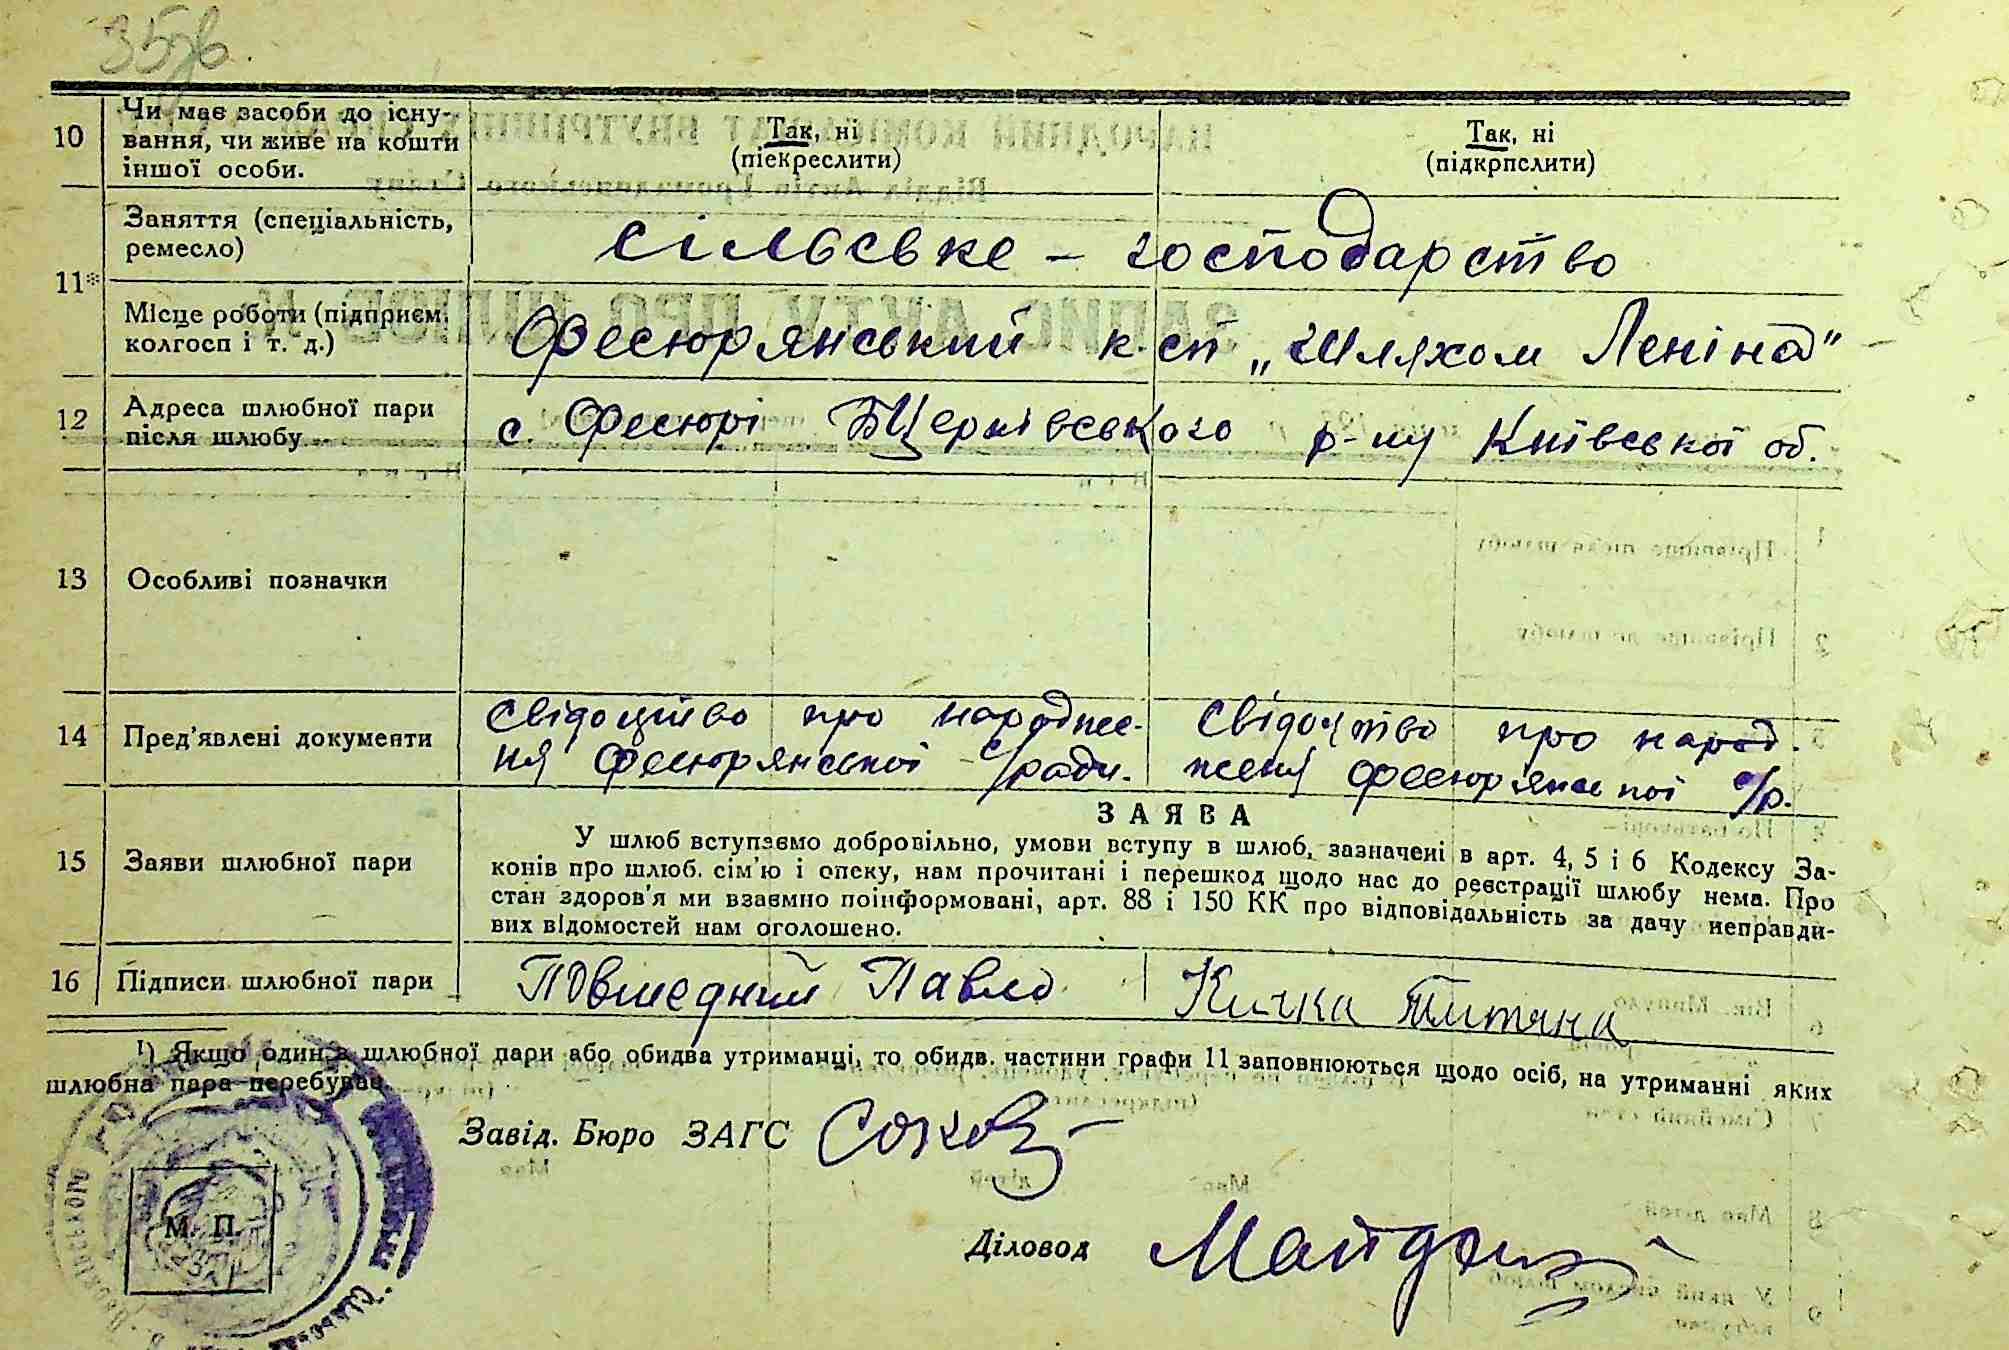 35зв.
10 Чи має засоби до існу-
вання, чи живе на кошти
іншої особи.
Так, ні
(піекреслити)
Так, ні
(підкрпслити)
11*
Заняття (спеціальність,
ремесло)
сільське – господарство
Місце роботи (підприєм.
колгосп і т. д.)
Фесюрянський к.сп „Шляхом Леніна"
12 Адреса шлюбної пари
після шлюбу
с. Фесюрі БЦерківського р-ну Київської об.
13 Особливі позначки
14 Пред'явлені документи
Свідоцтво про народже-
ня Фесюрянської с/ради.
Свідоцтво про народ-
женя Фесюрянської с/р.
15 Заяви шлюбної пари
ЗАЯВА
У шлюб вступаємо добровільно, умови вступу в шлюб, зазначені в арт. 4, 5 і 6 Кодексу За-
конів про шлюб. сім'ю і опеку, нам прочитані і перешкод щодо нас до реєстрації шлюбу нема. Про
стан здоров'я ми взаємно поінформовані, арт. 88 і 150 КК про відповідальність за дачу неправди-
вих відомостей нам оголошено.
16 Підписи шлюбної пари
Повшедний Павло
Кичка Титяна
¹) Якщо один з шлюбної пари або обидва утриманці, то обидв. частини графи 11 заповнюються щодо осіб, на утриманні яких
шлюбна пара перебуває.
Завід. Бюро ЗАГС
Діловод
М. П.